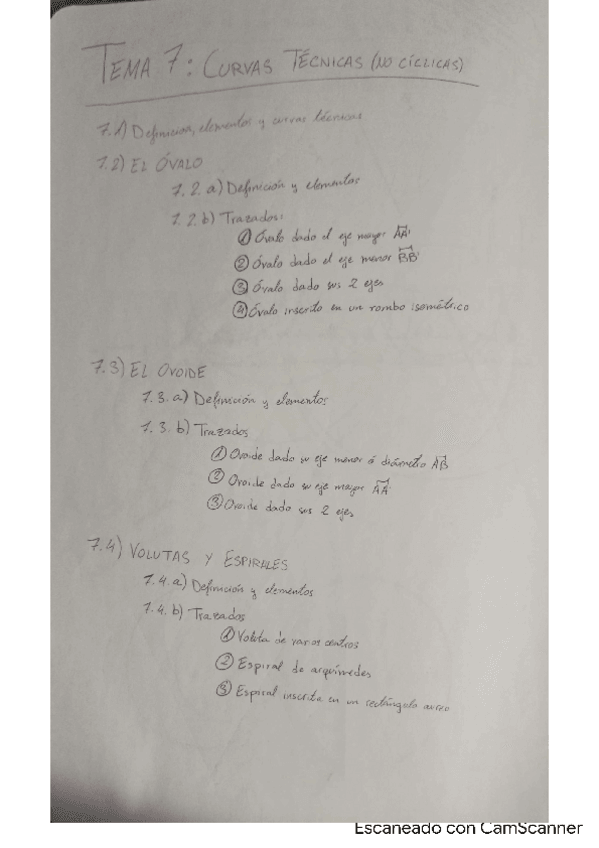 TEMA 7: CURVAS TÉCNICAS (NO CÍCLICAS)
7.1) Definición, elementos y curvas técnicas
7.2) EL ÓVALO
7.2.a) Definición y elementos
7.2.b) Trazados:
① Óvalo dado el eje mayor AA'
② Óvalo dado el eje menor BB'
③ Óvalo dado sus 2 ejes
④ Óvalo inscrito en un rombo isométrico
7.3) EL OVOIDE
7.3.a) Definición y elementos
7.3.b) Trazados
① Ovoide dado su eje menor ó diámetro AB
② Ovoide dado su eje mayor AA'
③ Ovoide dado sus 2 ejes
7.4) VOLUTAS Y ESPIRALES
7.4.a) Definición y elementos
7.4.b) Trazados
① Voluta de varios centros
② Espiral de arquímedes
③ Espiral inscrita en un rectángulo aureo
Escaneado con CamScanner